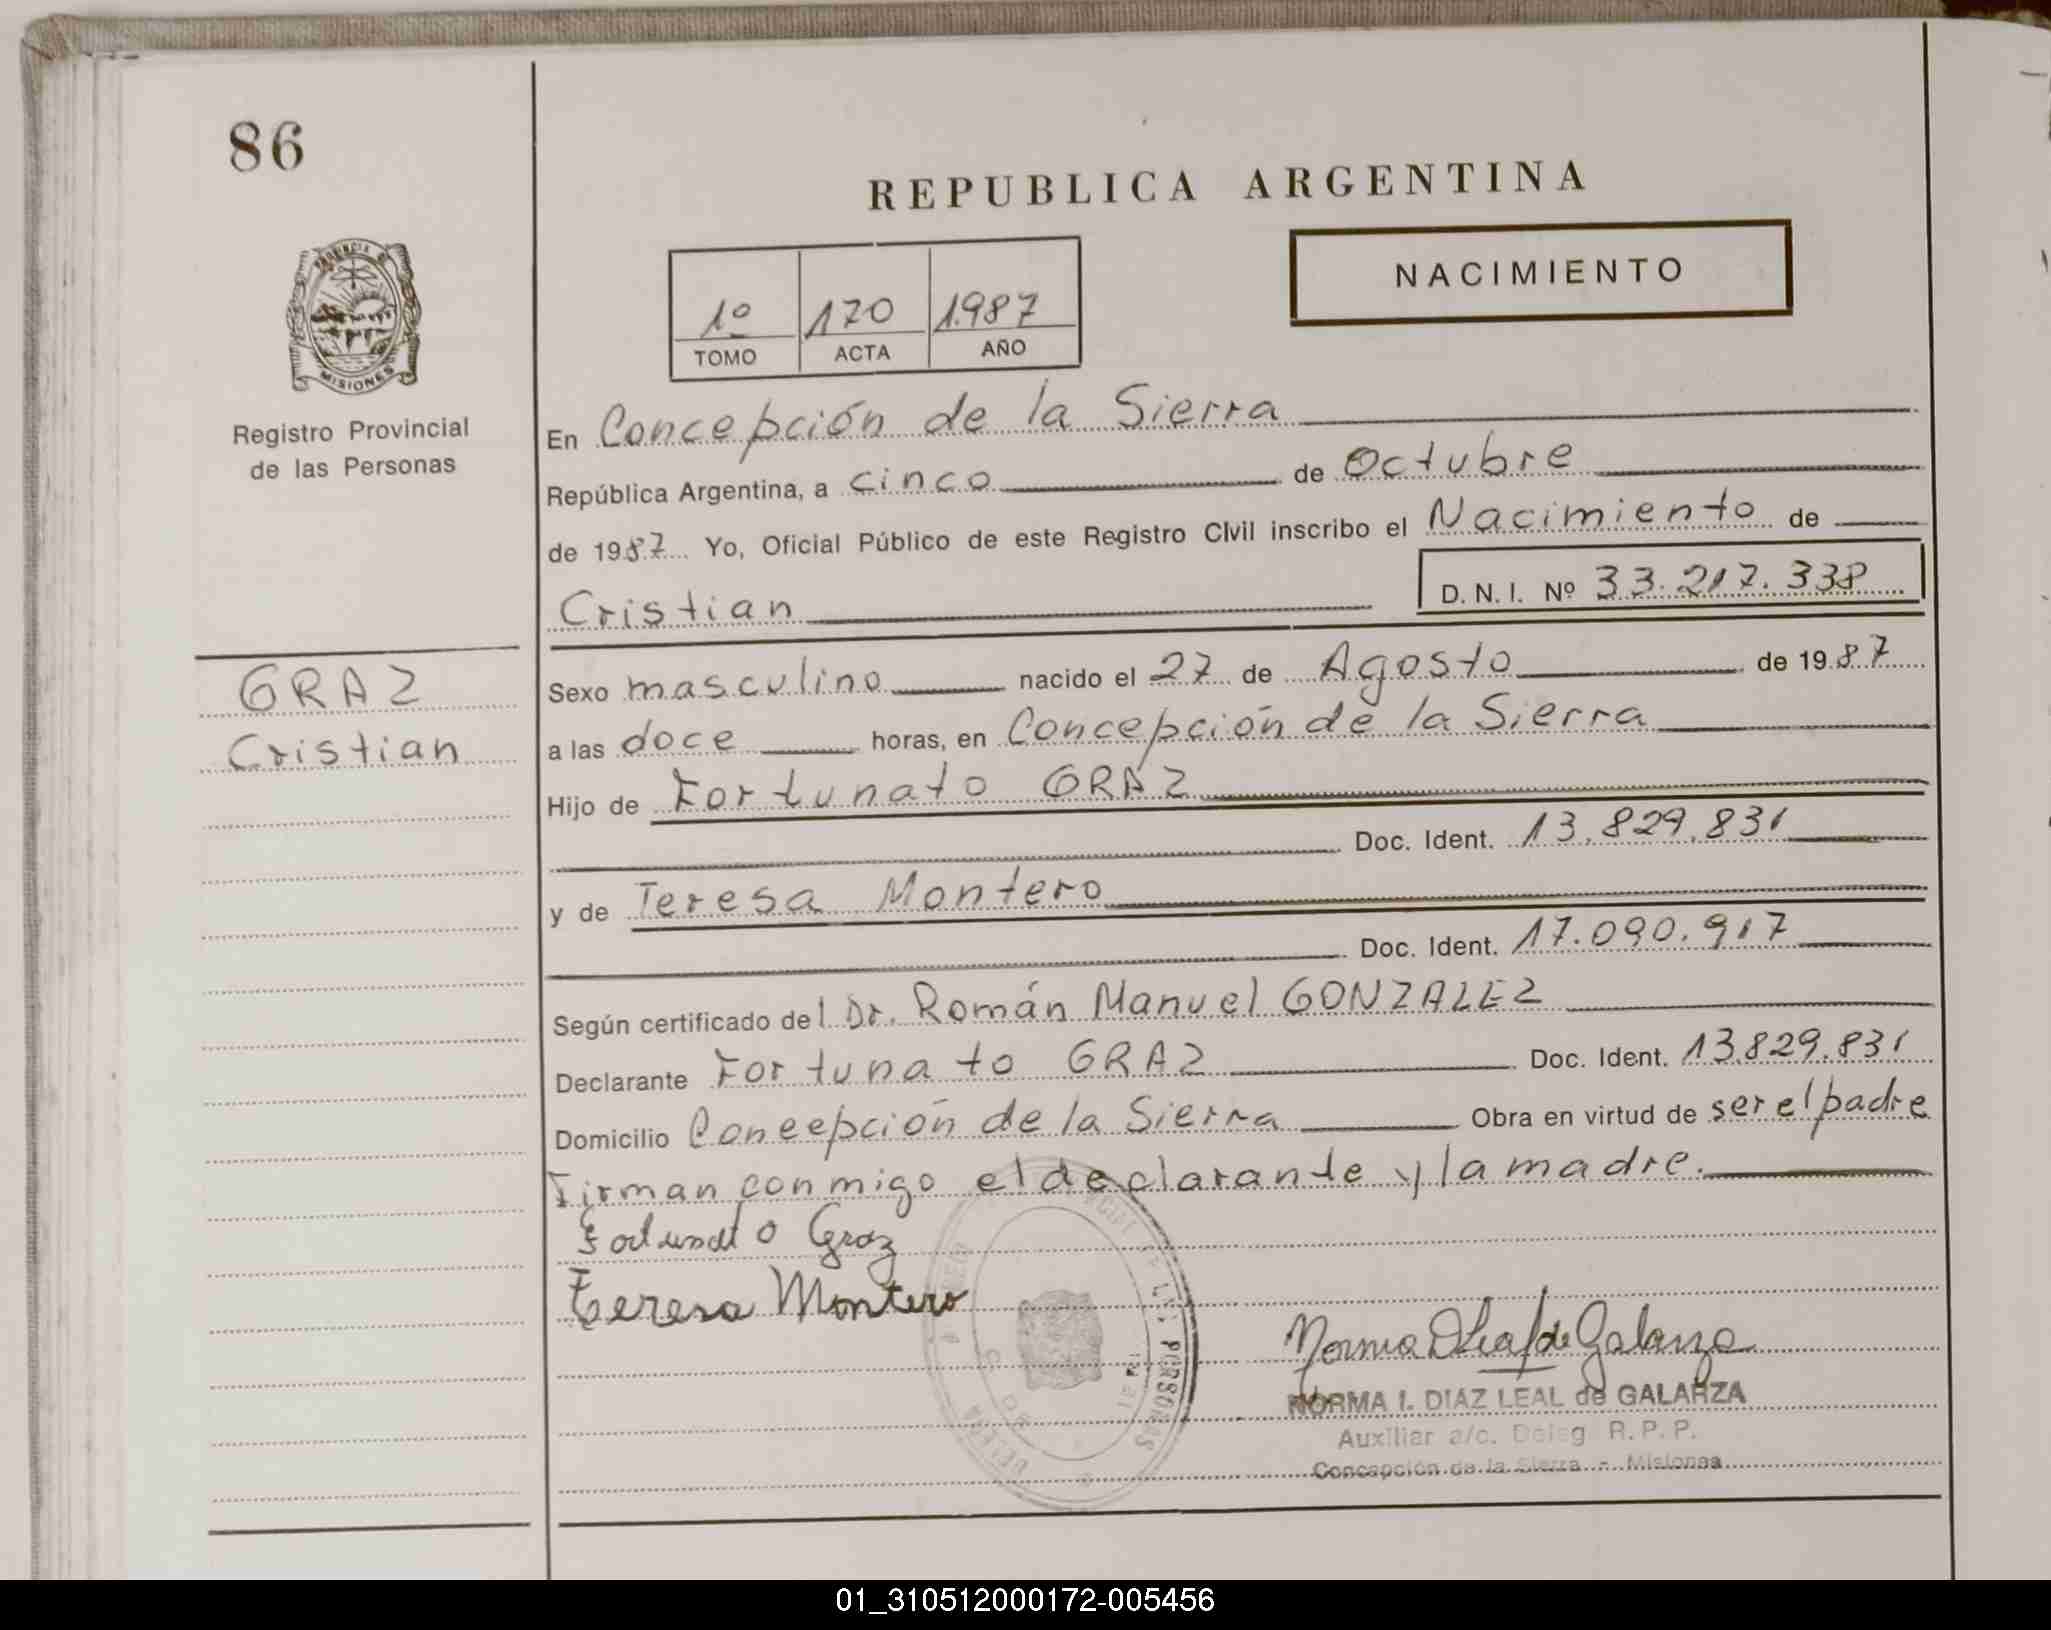 86
REPUBLICA ARGENTINA
PROVINCIA DE
MISIONES
Registro Provincial
de las Personas
1º 170 1.987
TOMO ACTA AÑO
NACIMIENTO
En Concepción de la Sierra
República Argentina, a cinco de Octubre
de 1987 Yo, Oficial Público de este Registro CIvil inscribo el Nacimiento de
Cristian D. N. I. Nº 33.217.338
GRAZ
Cristian
Sexo masculino nacido el 27 de Agosto de 1987
a las doce horas, en Concepción de la Sierra
Hijo de Fortunato GRAZ
Doc. Ident. 13.829.831
y de Teresa Montero
Doc. Ident. 17.090.917
Según certificado del Dr. Román Manuel GONZALEZ
Declarante Fortunato GRAZ Doc. Ident. 13.829.831
Domicilio Concepción de la Sierra Obra en virtud de ser el padre
Firman conmigo el declarante y la madre.
Fortunato Graz
Teresa Montero
PERSONAS
Norma D Leal de Galarza
NORMA I. DIAZ LEAL de GALARZA
Auxiliar a/c. Deleg R. P. P.
Concepción de la Sierra - Misiones
01_310512000172-005456